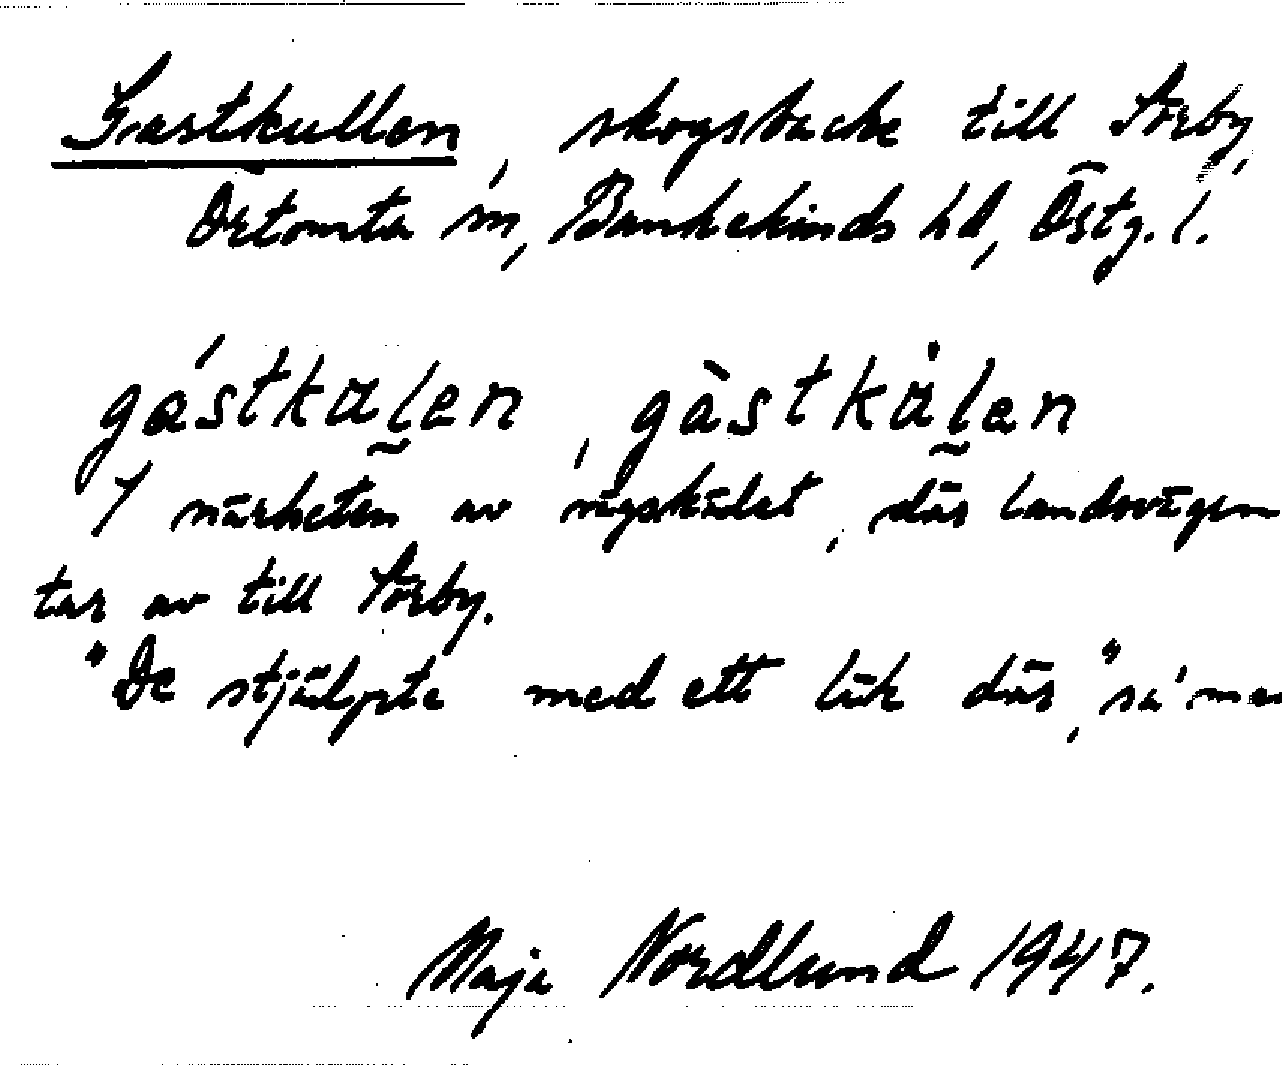 Gastkullen, skogsbacke till Sörby,
Örtomta sn, Bankekinds hd, Östg. l.
gástkalen, gàstkàlen
I närheten av vägskälet, där landsvägen
tar av till Sörby.
"De stjälpte med ett lik där," sa' man
Maja Nordlund 1947.